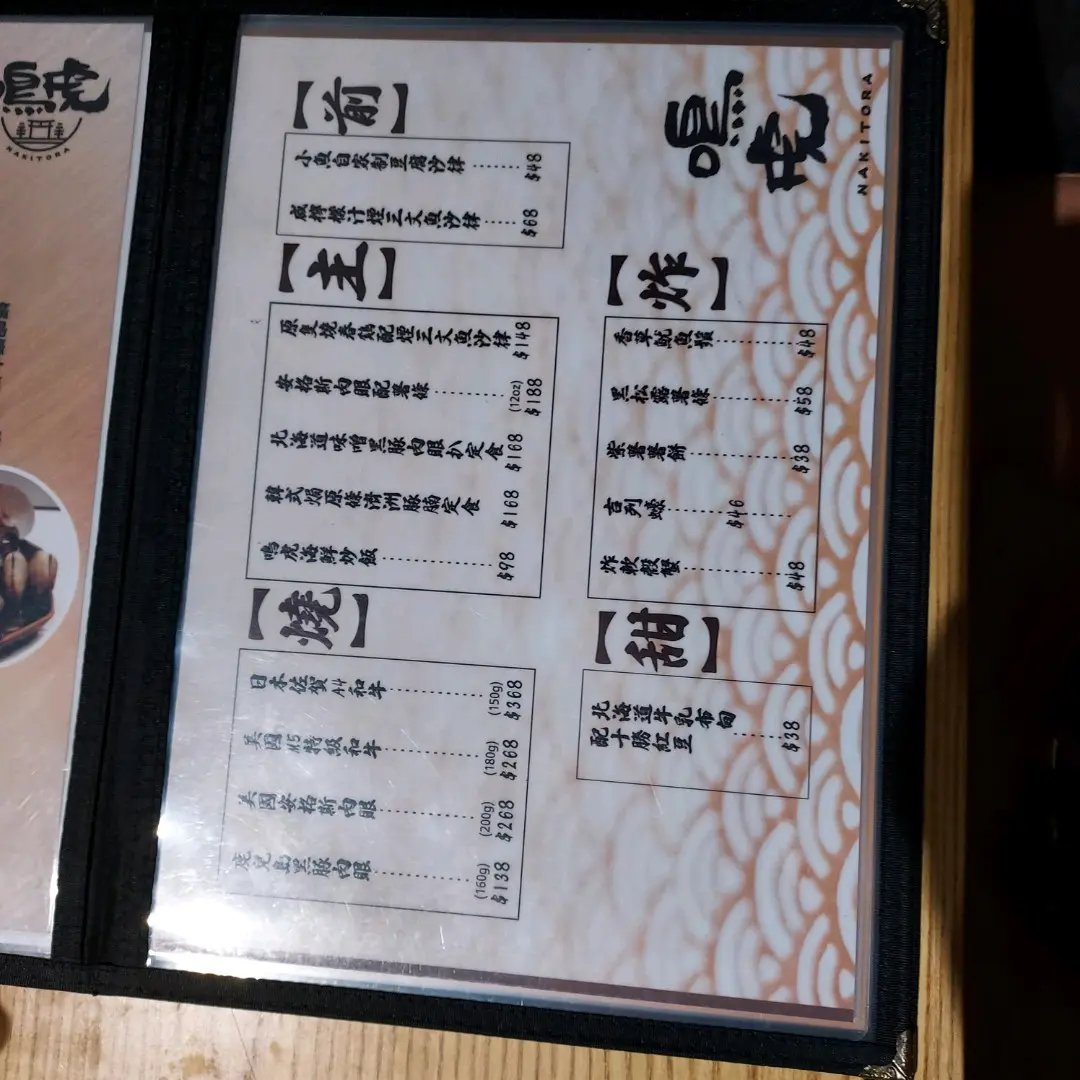 鳴虎
NAKITORA
【前】
小魚自家制豆腐沙律 ...... $48
咸檸檬汁煙三文魚沙律 ..... $68
【主】
原隻燒春鷄配煙三文魚沙律 $148
安格斯肉眼配薯條 .......... (12oz) $188
北海道味噌黑豚肉眼扒定食 $168
韓式焗原條濟洲豚腩定食 $168
鳴虎海鮮炒飯 .............. $98
【燒】
日本佐賀A4和牛 ............ (150g) $368
美國M5特級和牛 ............ (180g) $268
美國安格斯肉眼 ............ (200g) $268
鹿兒島黑豚肉眼 ............ (160g) $138
【炸】
香草魷魚鬚 ........ $48
黑松露薯條 ........ $58
紫薯薯餅 .......... $38
吉列蠔 $46 ......
炸軟殼蟹 .......... $48
【甜】
北海道牛乳布甸
配十勝紅豆 ........ $38
NAKITORA